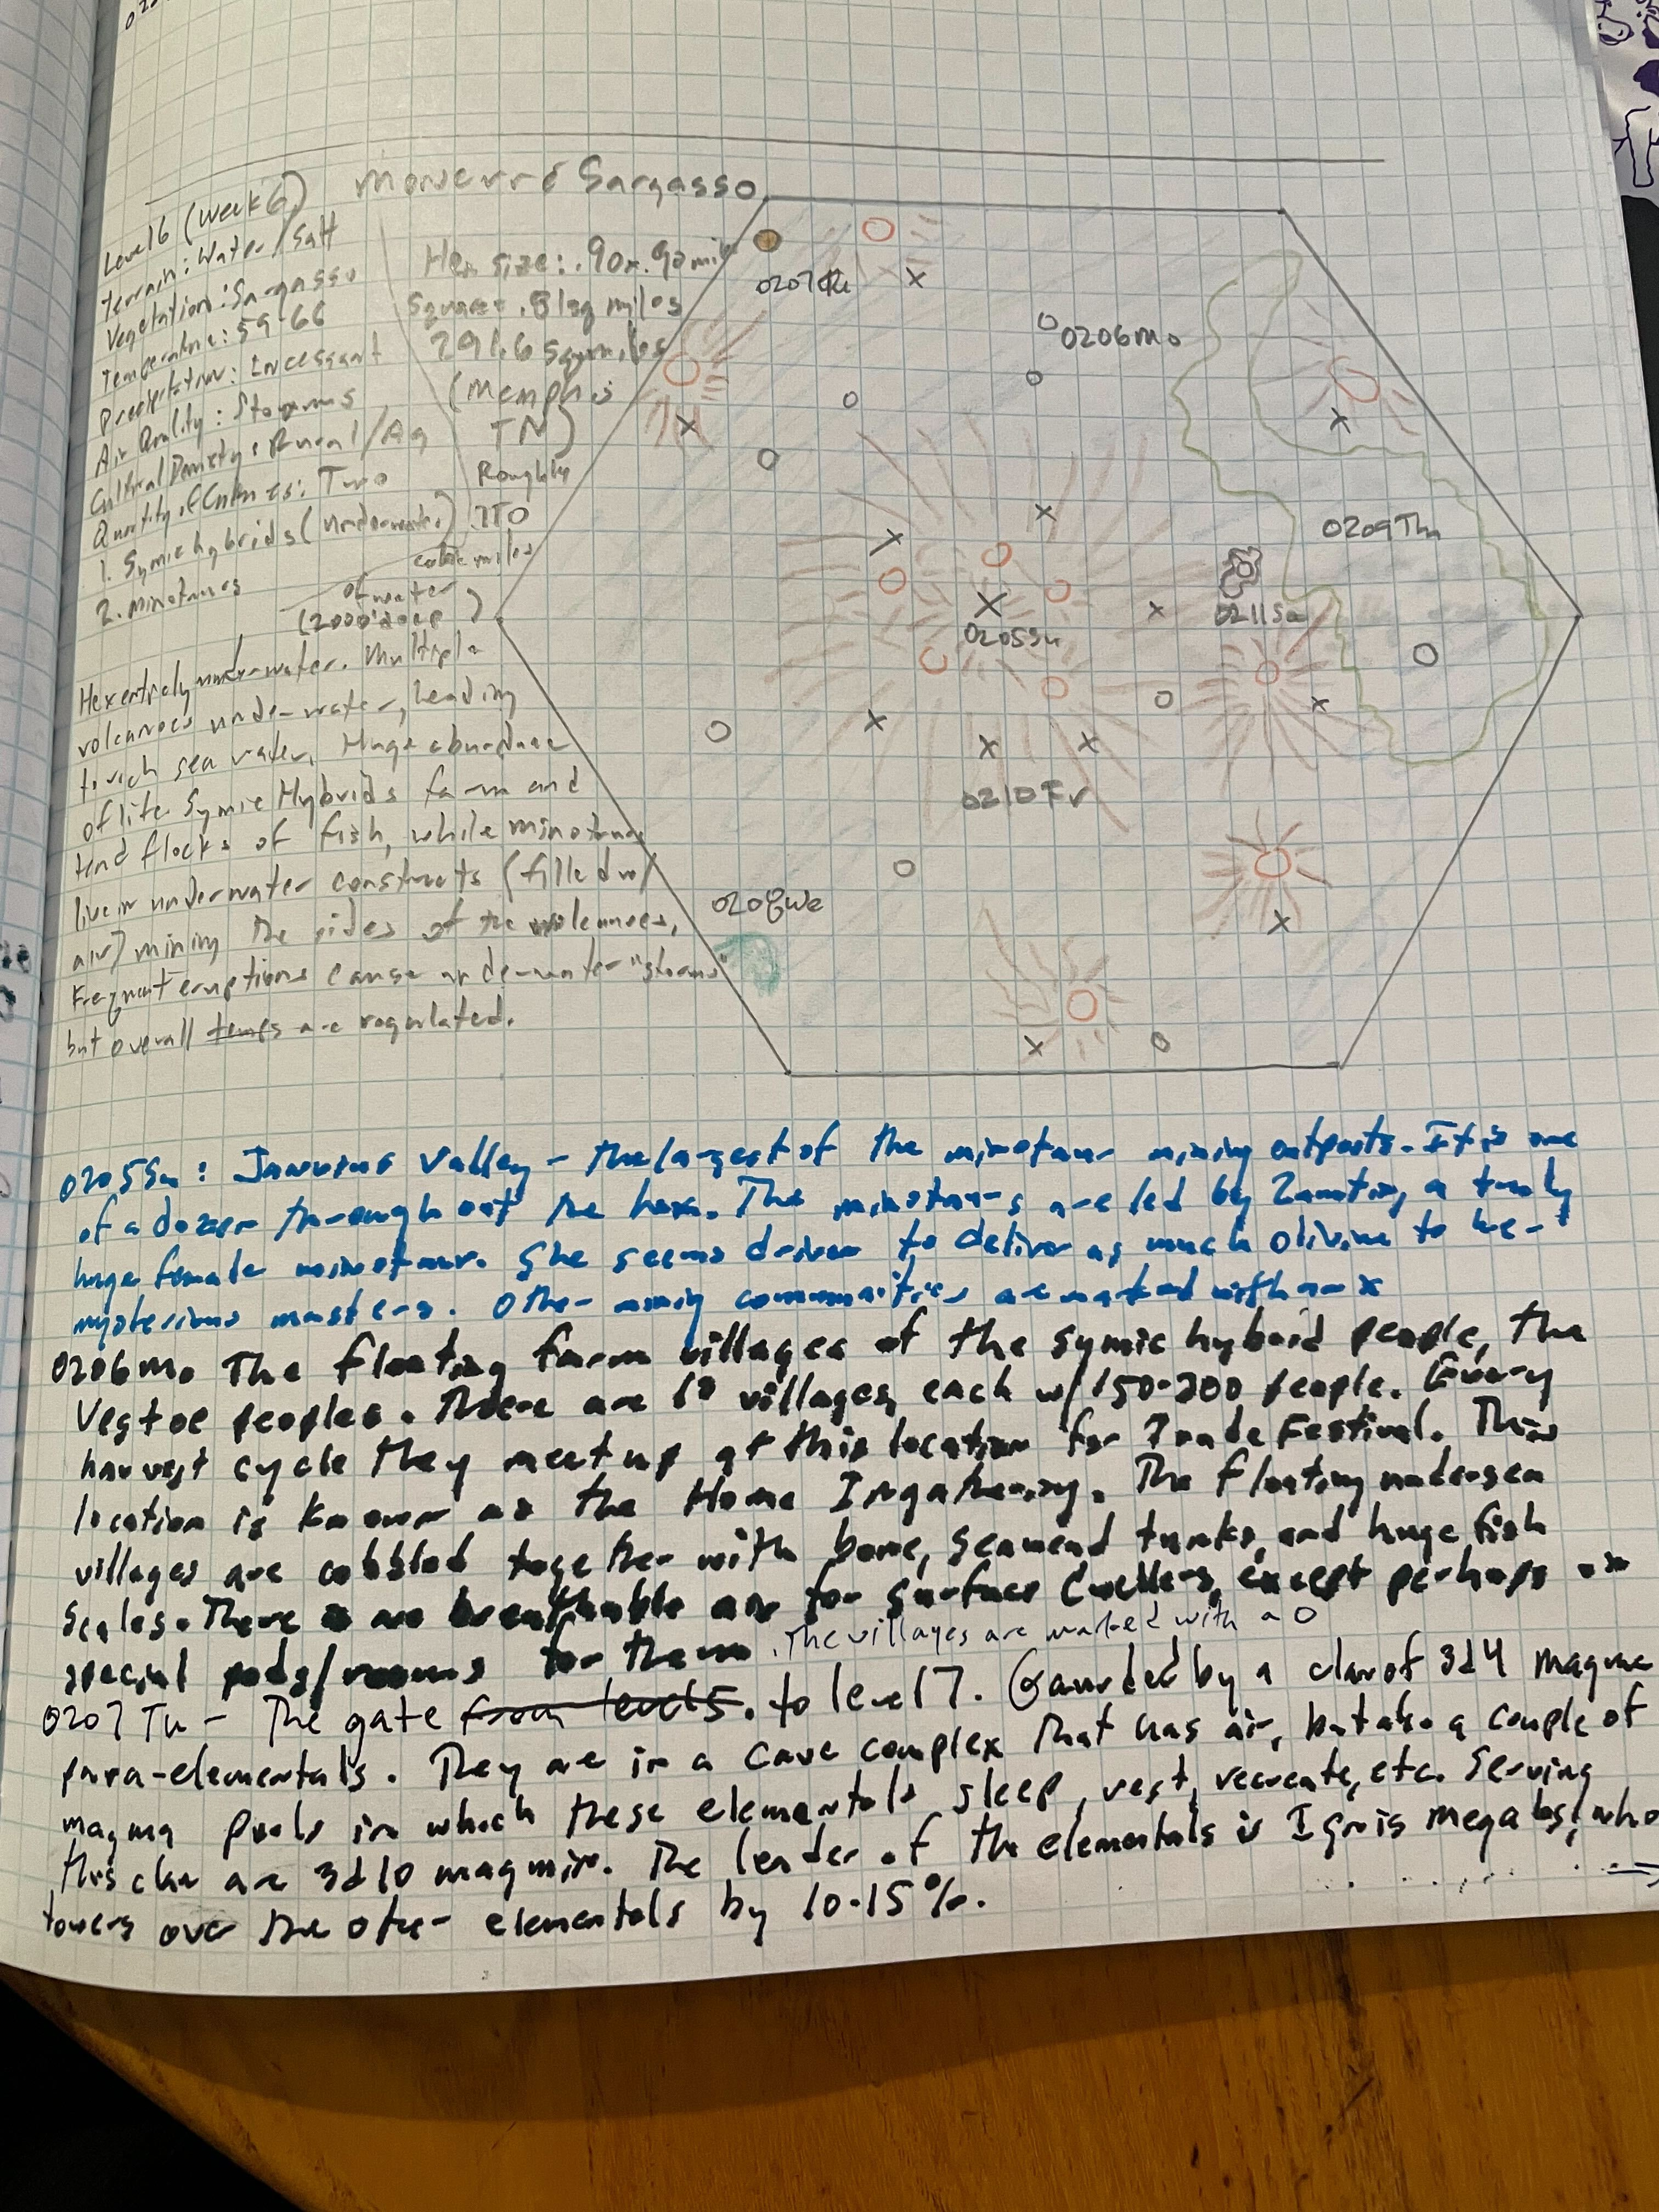 Sargasso
Level 6 (week 6)
Terrain: Water/Salt
Vegetation: Sargasso
Temperature: 59-66
Precipitation: Incessant
Air Quality: Storms
Cultural Density: Rural/Ag
Quantity of Cultures: Two
1. Symic hybrids (underwater)
2. Minotaurs
Hex size: .90x.90 mile
Square = .81sq miles
291.6 sqmiles
(Memphis
TN)
Roughly
110
cubic miles
of water
(2000' deep)
Hex entirely underwater. Multiple
volcanoes underwater, leading
to rich sea water. Huge abundance
of life Symic Hybrids farm and
tend flocks of fish, while minotaurs
live in underwater constructs (filled w/
air) mining the sides of the volcanoes,
Frequent eruptions cause underwater "storms"
but overall temps are regulated.
0207Tu
0206Mo
0209Th
0211Sa
0205Su
0210Fr
0208We
0205Su: Valley - the largest of the minotaur mining outposts. It is one
of a dozen throughout the hex. The minotaurs are led by a truly
huge female minotaur. She seems driven to deliver as much olivine to her
mysterious masters. Other mining communities are marked with an x
0206Mo The floating farm villages of the symic hybrid people, the
peoples. There are villages, each w/150-200 people. Every
harvest cycle they meet up at this location for Trade Festival. This
location is known as the Home Ingathering. The floating undersea
villages are cobbled together with bone, seaweed trunks, and huge fish
scales. There is no breathable air for surface dwellers, except perhaps in
special pods/rooms for them. The villages are marked with a O
0207 Tu - The gate from level 5. to level 7. Gaurded by a clan of 3d4 magma
para-elementals. They are in a cave complex that has air, but also a couple of
magma pools in which these elementals sleep, rest, recreate, etc. Serving
this clan are 3d10 magmin. The leader of the elementals is Ignis who
towers over the other elementals by 10-15%.